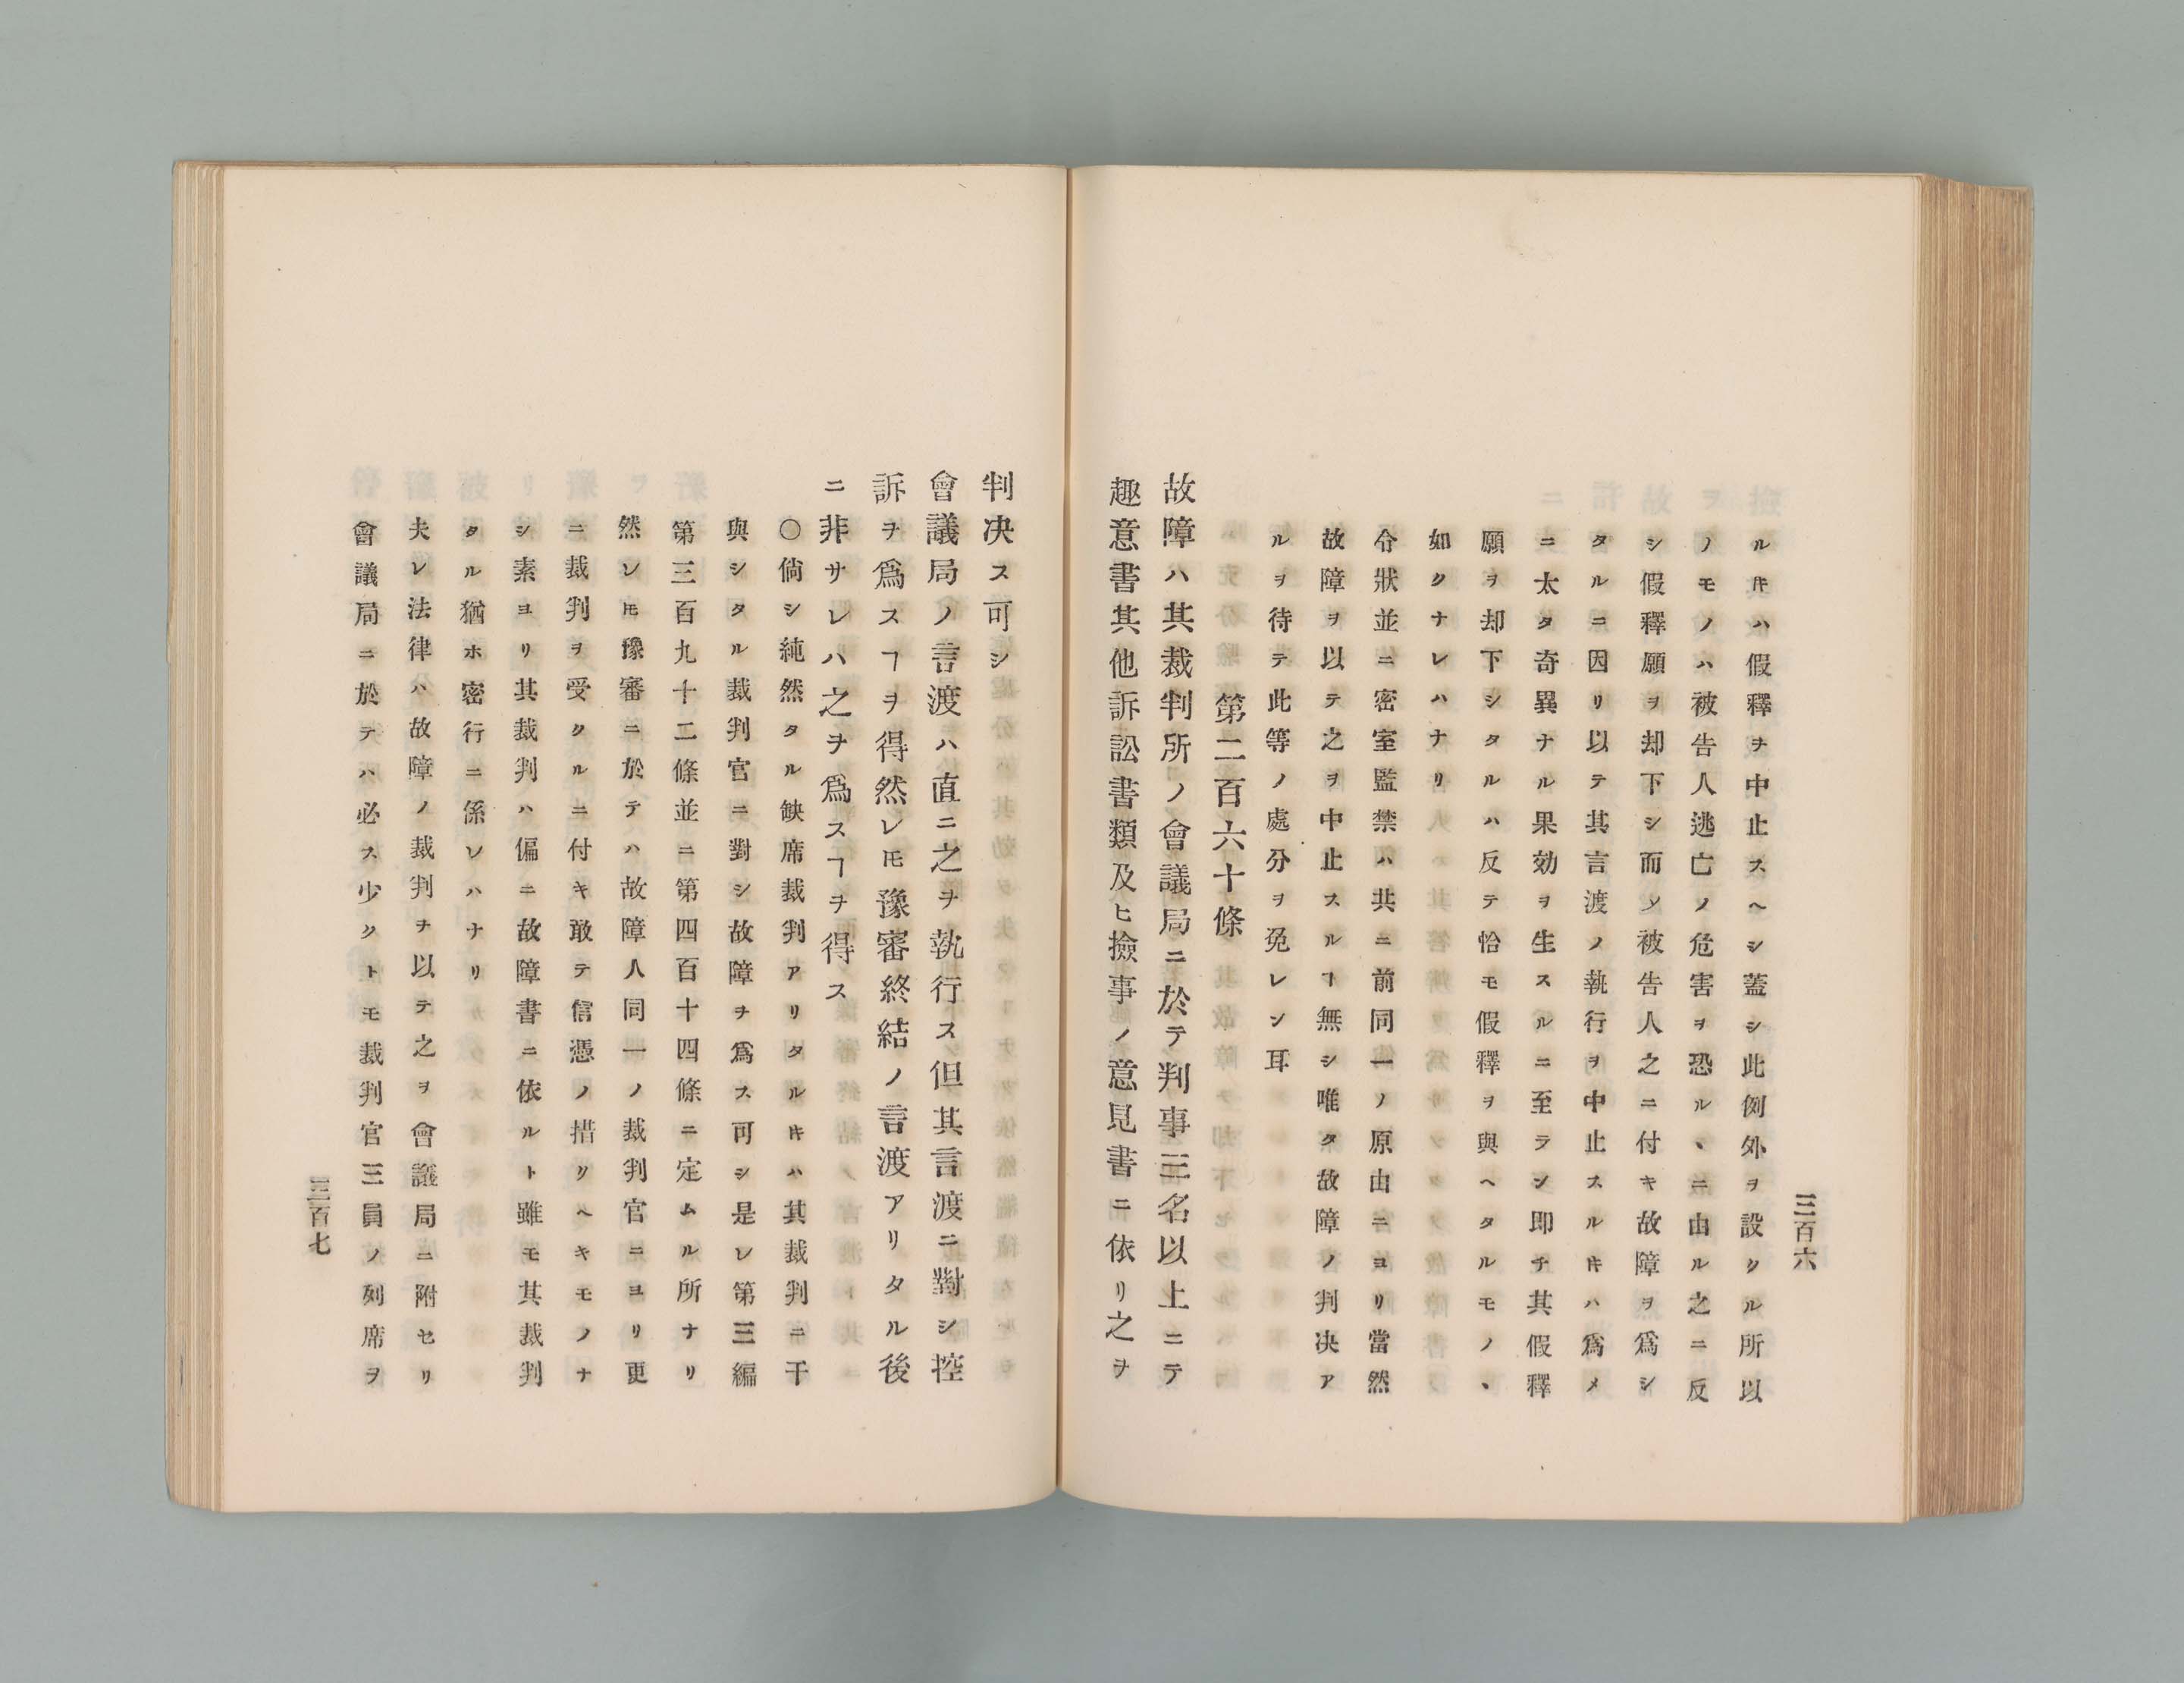 三百六
ルキハ假釋ヲ中止スヘシ蓋シ此例外ヲ設クル所以
ノモノハ被告人逃亡ノ危害ヲ恐ルヽニ由ル之ニ反
シ假釋願ヲ却下シ而ソ被告人之ニ付キ故障ヲ爲シ
タルニ因リ以テ其言渡ノ執行ヲ中止スルキハ爲メ
ニ太タ奇異ナル果効ヲ生スルニ至ラン即チ其假釋
願ヲ却下シタルハ反テ恰モ假釋ヲ與ヘタルモノヽ
如クナレハナリ
令狀並ニ密室監禁ハ共ニ前同一ノ原由ニヨリ當然
故障ヲ以テ之ヲ中止スルヿ無シ唯タ故障ノ判决ア
ルヲ待テ此等ノ處分ヲ免レン耳
第二百六十條
故障ハ其裁判所ノ會議局ニ於テ判事三名以上ニテ
趣意書其他訴訟書類及ヒ撿事ノ意見書ニ依リ之ヲ
判决ス可シ
會議局ノ言渡ハ直ニ之ヲ執行ス但其言渡ニ對シ控
訴ヲ爲スヿヲ得然レ𪜈豫審終結ノ言渡アリタル後
ニ非サレハ之ヲ爲スヿヲ得ス
○倘シ純然タル缺席裁判アリタルキハ其裁判ニ干
與シタル裁判官ニ對シ故障ヲ爲ス可シ是レ第三編
第三百九十二條並ニ第四百十四條ニ定ムル所ナリ
然レ𪜈豫審ニ於テハ故障人同一ノ裁判官ニヨリ更
ニ裁判ヲ受クルニ付キ敢テ信憑ノ措リヘキモノナ
シ素ヨリ其裁判ハ偏ニ故障書ニ依ルト雖モ其裁判
タル猶ホ密行ニ係レハナリ
夫レ法律ハ故障ノ裁判ヲ以テ之ヲ會議局ニ附セリ
會議局ニ於テハ必ス少クトモ裁判官三員ノ列席ヲ
三百七